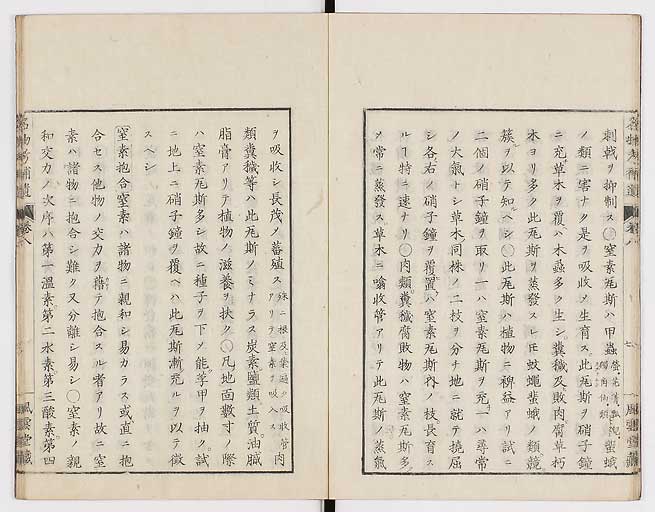 刺戟ヲ抑制ス○窒素瓦斯ハ甲蟲蜜蛾
ノ類ニ害ナク是ヲ吸收メ生育ス此瓦斯ヲ硝子鐘
ニ充草木ヲ覆ハ木蟲多ク生シ糞穢及敗肉腐草朽
木ヨリ多ク此瓦斯ヲ蒸發スレ𪜈蚊蠅蜚蛾ノ類競
簇ヲ以テ知ヘシ○此瓦斯ハ植物ニ裨益アリ試ニ
二個ノ硝子鐘ヲ取リ一ハ窒素瓦斯ヲ充一ハ尋常
ノ大氣トシ草木同株ノ二枝ヲ分チ地ニ就テ撓屈
シ各右ノ硝子鐘ヲ覆置ハ窒素瓦斯內ノ枝長育ス
ルヿ特ニ速ナリ○肉類糞穢腐敗物ハ窒素瓦斯多
ノ常ニ蒸發ス草木ニ噏收管アリテ此瓦斯ノ蒸氣
ヲ吸收シ長茂メ蕃殖ス殊ニ根及葉遍ク吸收管アリテ窒素ヲ吸入ス肉
類糞穢等ハ此瓦斯ノミナラス炭素鹽類土質油膩
脂膏アリテ植物ノ滋養ヲ扶ク○凡地面數寸ノ際
ハ窒素瓦斯多シ故ニ種子ヲ下メ能孚甲ヲ抽ク試
ニ地上ニ硝子鐘ヲ覆ヘハ此瓦斯漸充ルヲ以テ徵
スヘシ
窒素抱合窒素ハ諸物ニ親和シ易カラス或直ニ抱
合セス他物ノ交力ヲ藉テ抱合スル者アリ故ニ窒
素ハ諸物ニ抱合シ難ク又分離シ易シ○窒素ノ親
和交力ノ次序ハ第一溫素第二水素第三酸素第四